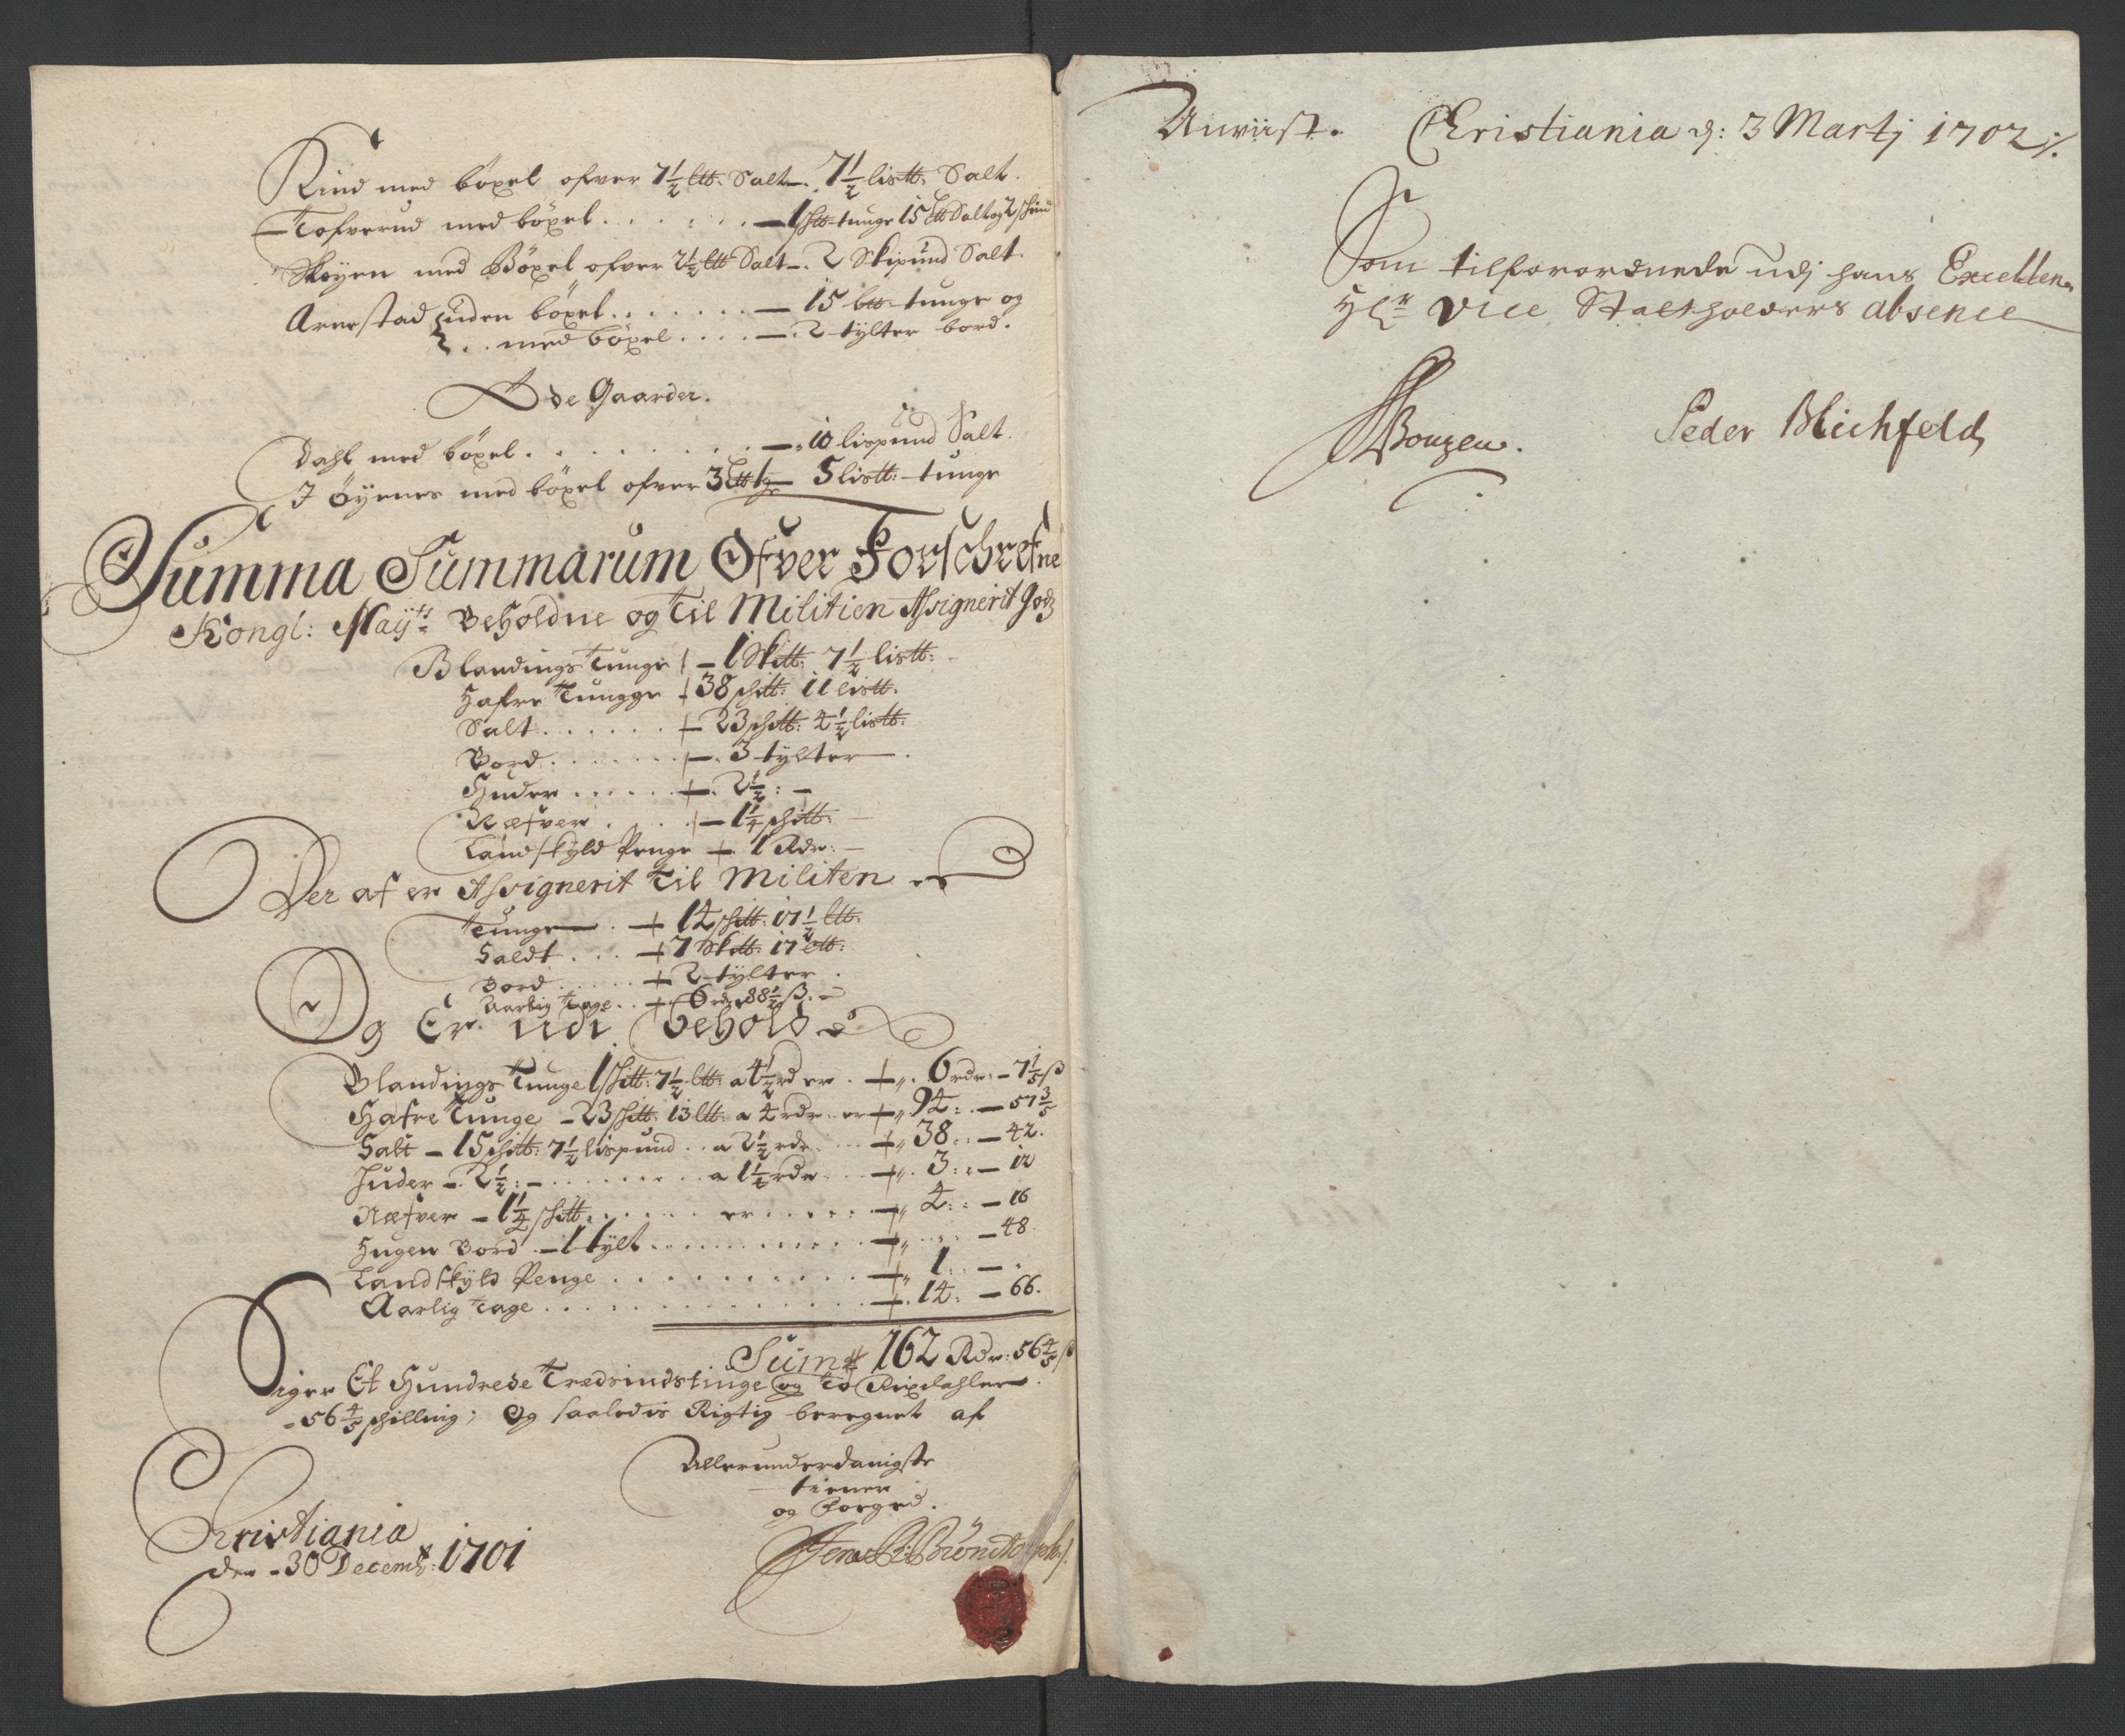 Rind med böxel ofver 7½ ltt: Salt - 7½ listt: Salt.
Tofverud med böxel . . . . . . - 1 shtt tunge 15 ltt Salt og 2 skind
Skøyen med Böxel ofver 2½ ltt Salt - 2 Skipund Salt.
Arnestad uden böxel . . . . . . - 15 ltt tunge og
. . med böxel . . . . - 2 tylter bord.
Øde Gaarder.
Dahl med böxel . . . . . . . . - 10 lispund Salt.
I Öyenes med böxel ofver 3 ltt tge 5 listt: tunge
Summa Summarum Ofver Forschrefne
Kongl: Mayts Beholdne og Til Militien Assignerit Godz
Blandings Tunge - 1 Skitt: 7½ listt:
Hafre Tungge 38 schitt: 11 listt.
Salt . . . . . . - 23 schitt: 4½ listt:
Bord . . . . . . . - 3 tylter
Huder . . . . . - 2½ : -
Næfver . . . . - 1¼ schitt:
Landskyld Penge - 1 Rdr: -
Der af er Assignerit Til Militen
Tunge - . - 14 schitt: 17½ ltt.
Saldt . . . - 7 Skitt: 17 ltt:
Bord . . . . . - 2 tylter .
Aarlig Tage . . - 6 rdr 88½ ß. -
Og Er udi Behold
Blandings Tunge 1 schitt: 7½ ltt: a 4½ rd er . - 6 rdr: - 7½ ß
Hafre Tunge - 23 schitt: 13 ltt: a 4 rdr er - 94: . - 57⅗
Salt - 15 schitt: 7½ lispund . . a 2½ rdr . . - 38 : - 42.
Huder - 2½ : - . . . . . . . a 1¼ rdr . . . - 3 : - 12
Næfver - 1¼ schitt . . . . . er . . . . . - 4 : - 16
Hugen Bord - 1 tylt . . . . . . . . . . . - 48.
Landskyld Penge . . . . . . . . . . - 1 : - .
Aarlig Tage . . . . . . . . . . . . . - 14: - 66.
Sum 162 Rdr: 56⅘ ß
Siger Et Hundrede Tredsindstiuge og To Rixdahler.
- 56⅘ schilling; Og saaledis Rigtig beregnet af
Allerunderdanigste
tiener
og Forged.
Christiania
den 30 Decembr: 1701
Jens
Anviist. Christiania d: 3 Martj 1702 ./.
Som tilforordnede udj hans Excellen
Hlr Vice Statholders absence
Peder Blichfeld